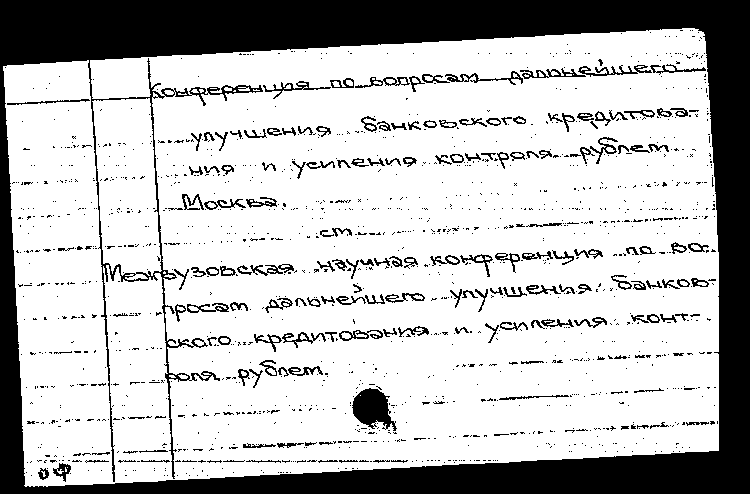 Конференция по вопросам дальнейшего
улучшения банковского кредитова-
ния и усиления контроля рублем
Москва.
см
Межвузовская научная конференция по во-
просам дальнейшего улучшения банков-
ского кредитования и усиления конт-
роля рублем.
оф